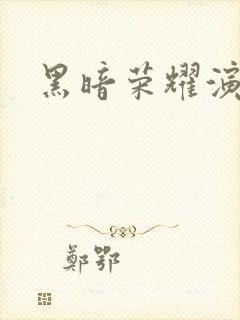 黑暗荣耀演
鄭鄂